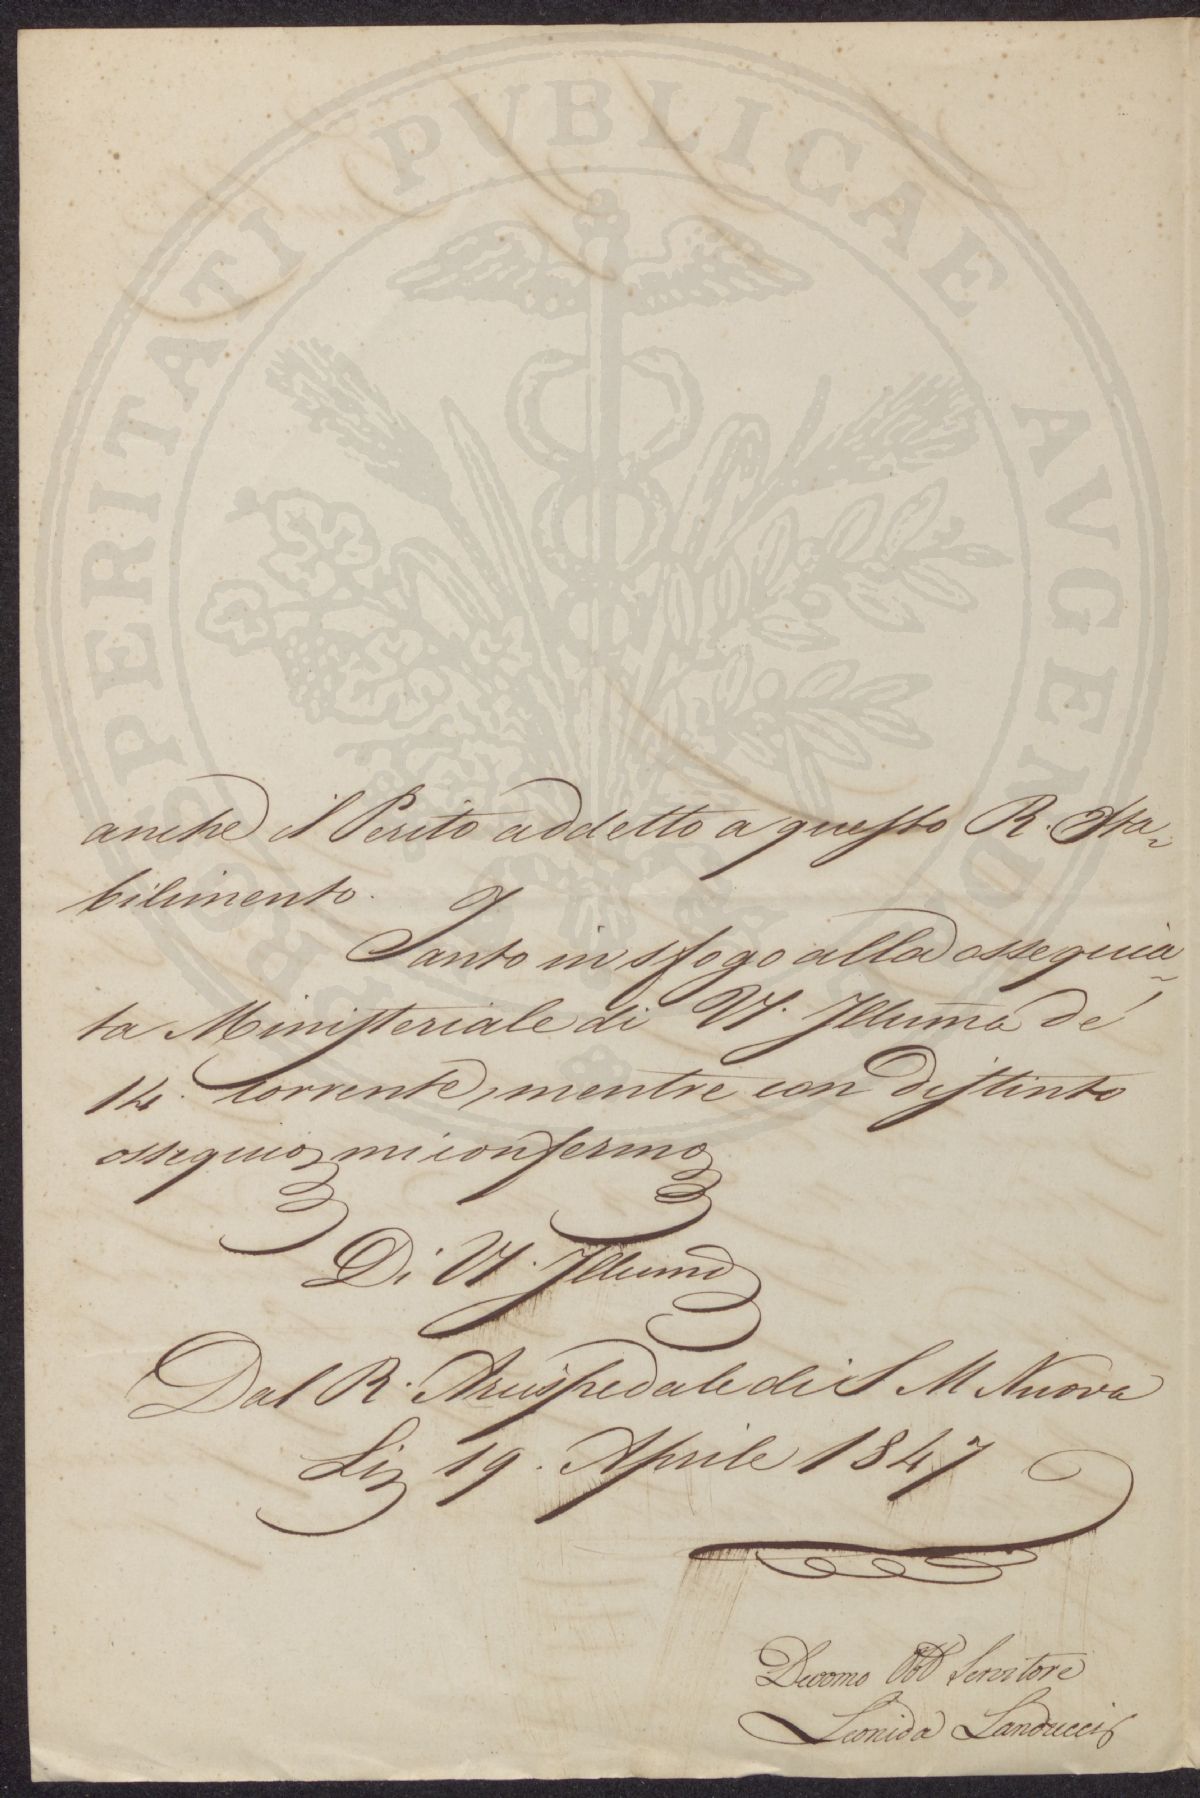 PROSPERITATI PUBLICAE AVGENDAE
anche il Perito addetto a questo R. Sta-
bilimento.
Tanto in sfogo alla ossequia-
ta Ministeriale di VS. Illuma de'
14. corrente, mentre con distinto
ossequio mi confermo
Di VS. Illuma
Dal R. Arcispedale di S M Nuova
Li 19. Aprile 1847
Devomo Obb Servitore
Leonida Landucci